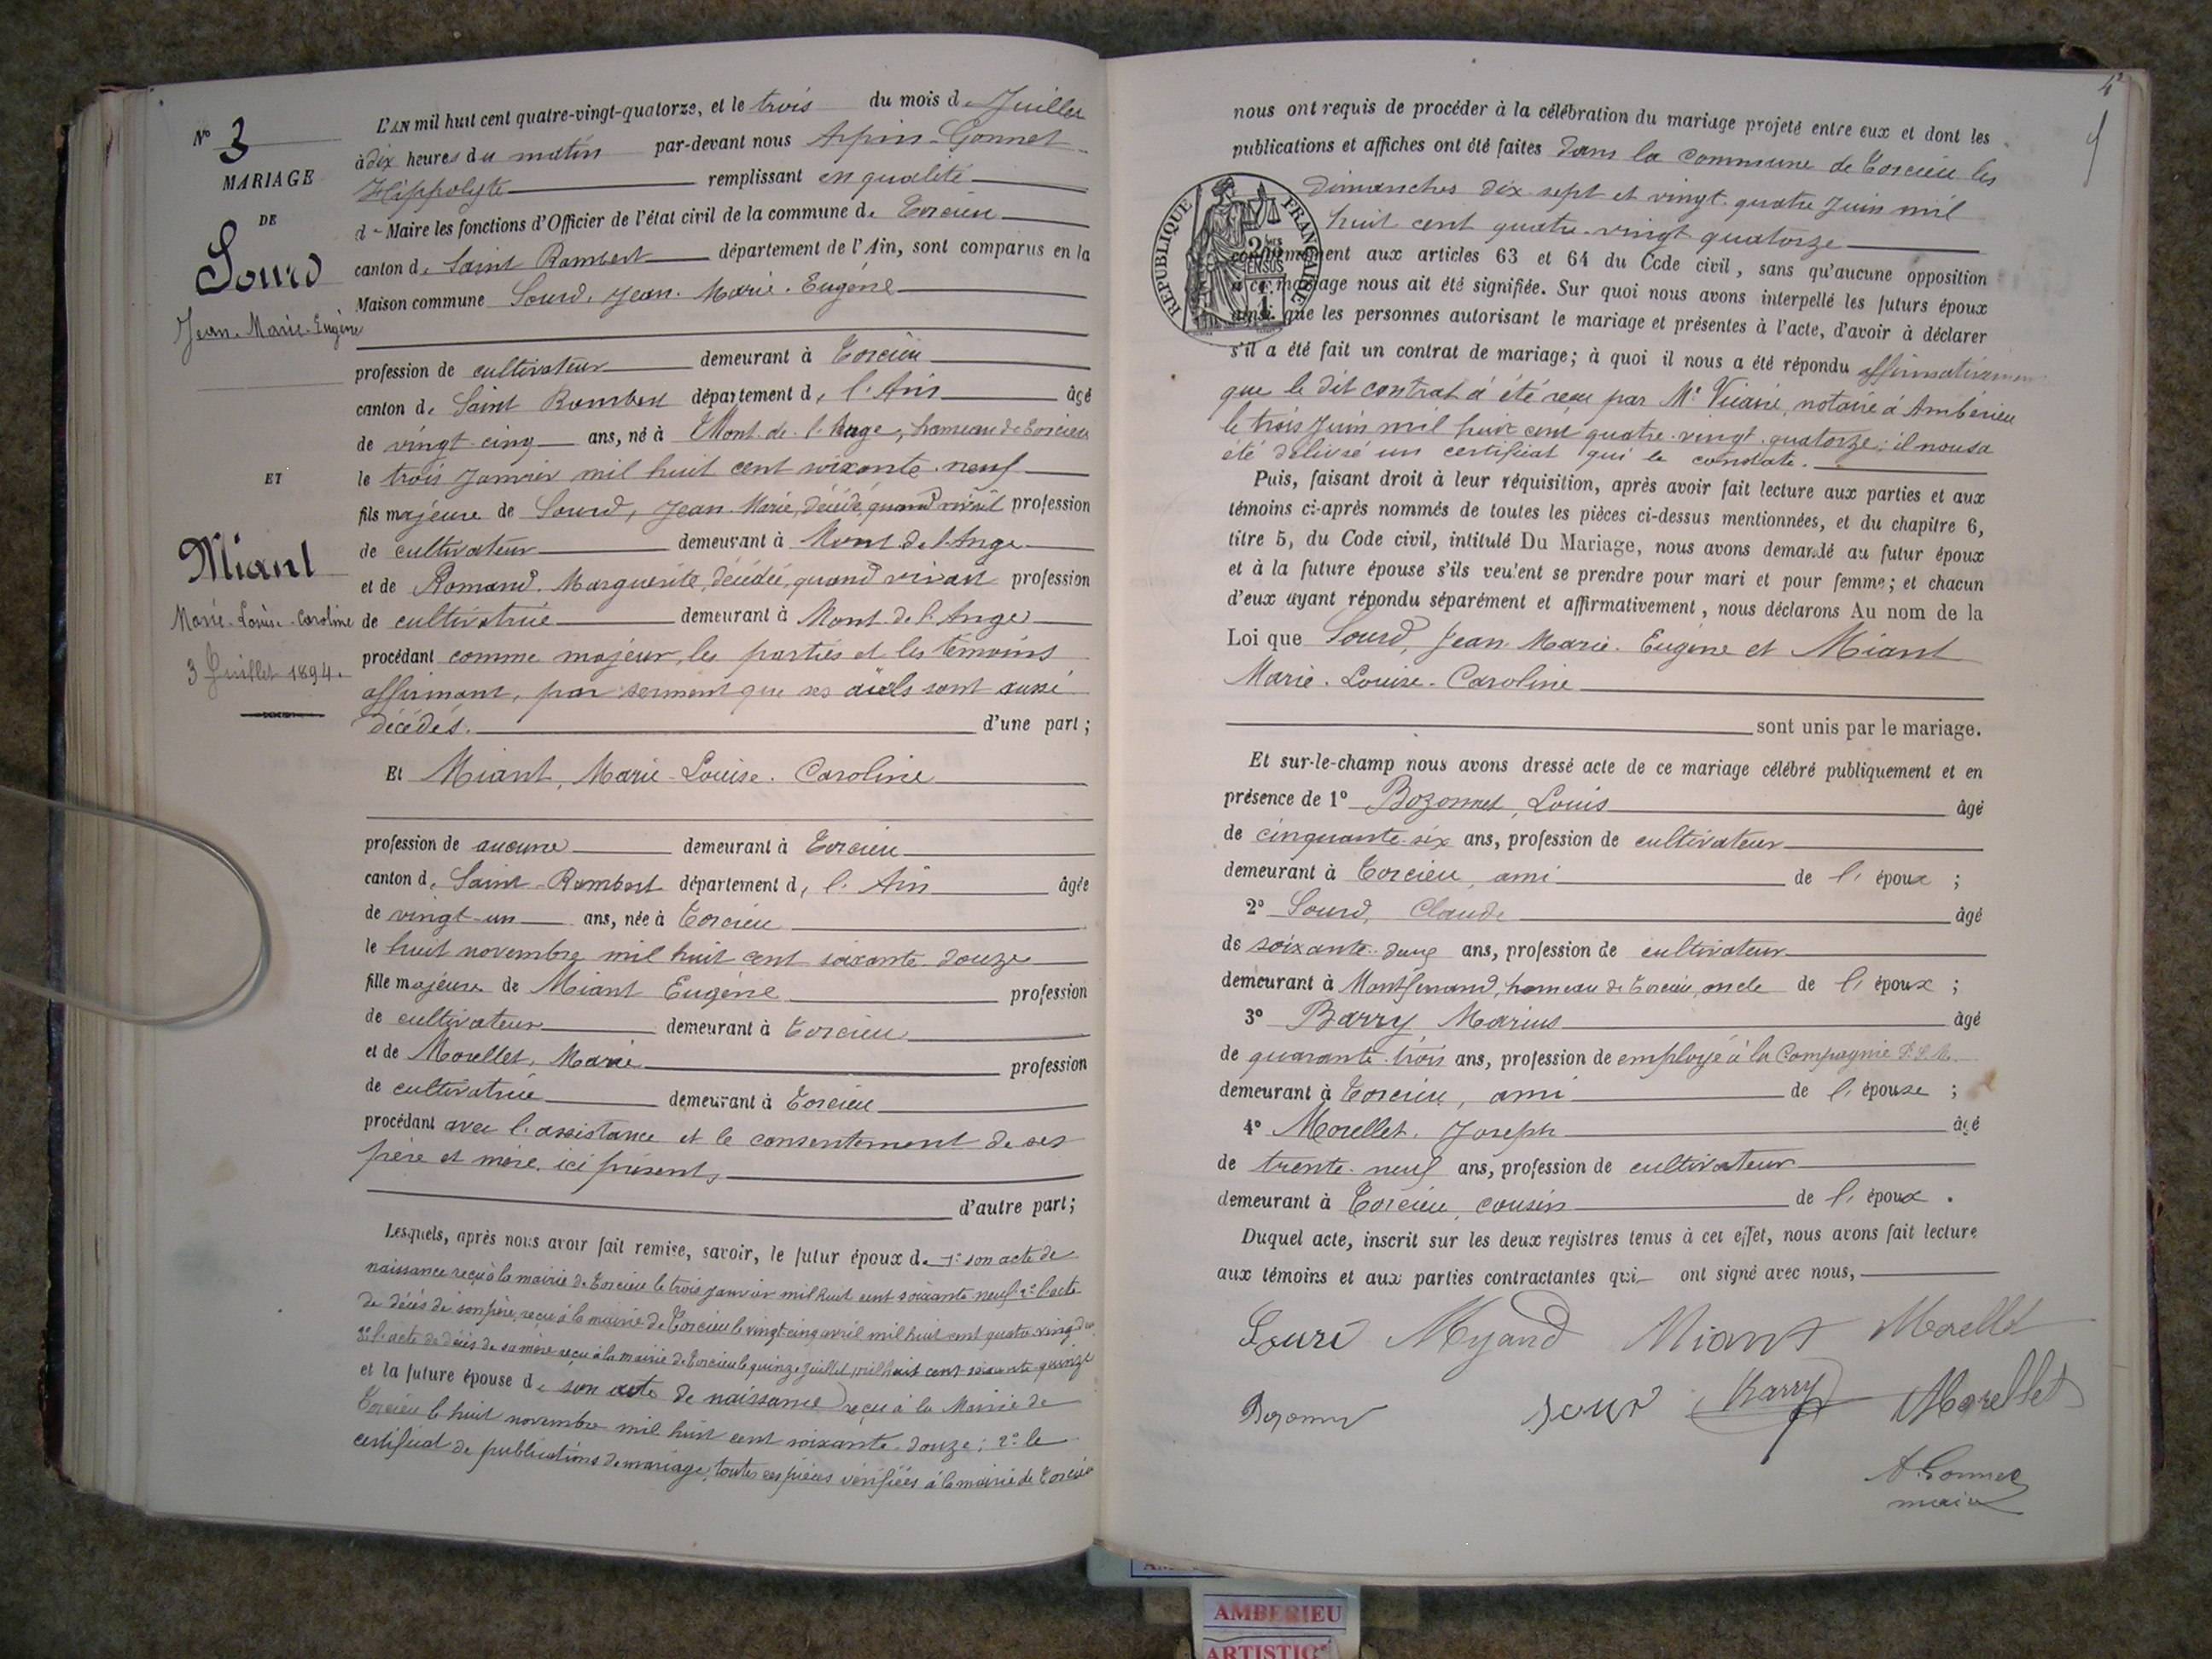 N° 3
MARIAGE
DE
Sourd
Jean-Marie-Eugène
ET
Miant
Marie-Louise-Caroline
3 Juillet 1894.
L'AN mil huit cent quatre-vingt-quatorze, et le trois du mois de Juillet
à dix heures du matin par-devant nous Arpin-Gonnet
Hippolyte remplissant en qualité
de Maire les fonctions d'Officier de l'état civil de la commune de Torcieu
canton de Saint Rambert département de l'Ain, sont comparus en la
Maison commune Sourd, Jean-Marie-Eugène
profession de cultivateur demeurant à Torcieu
canton de Saint Rambert département de l'Ain âgé
de vingt-cinq ans, né à Mont-de-l'Ange, hameau de Torcieu
le trois Janvier mil huit cent soixante-neuf
fils majeur de Sourd, Jean-Marie, décédé, quand vivait profession
de cultivateur demeurant à Mont-de-l'Ange
et de Romand Marguerite, décédée, quand vivait profession
de cultivatrice demeurant à Mont-de-l'Ange
procédant comme majeur, les parties et les témoins
affirmant, par serment que ses aïeuls sont aussi
décédés. d'une part;
Et Miant, Marie-Louise-Caroline
profession de aucune demeurant à Torcieu
canton de Saint-Rambert département de l'Ain âgée
de vingt-un ans, née à Torcieu
le huit novembre mil huit cent soixante-douze
fille majeure de Miant Eugène profession
de cultivateur demeurant à Torcieu
et de Morellet, Marie profession
de cultivatrice demeurant à Torcieu
procédant avec l'assistance et le consentement de ses
père et mère, ici présents,
d'autre part;
Lesquels, après nous avoir fait remise, savoir, le futur époux de 1° son acte de
naissance reçu à la mairie de Torcieu le trois janvier mil huit cent soixante-neuf 2° l'acte
de décès de son père, reçu à la mairie de Torcieu le vingt-cinq avril mil huit cent quatre-vingt
3° l'acte de décès de sa mère reçu à la mairie de Torcieu le quinze Juillet mil huit cent soixante-quinze
et la future épouse de son acte de naissance reçu à la Mairie de
Torcieu le huit novembre mil huit cent soixante-douze; 2° le
certificat de publications de mariage, toutes ces pièces vérifiées à la mairie de Torcieu
4
nous ont requis de procéder à la célébration du mariage projeté entre eux et dont les
publications et affiches ont été faites dans la commune de Torcieu les
dimanches dix-sept et vingt-quatre Juin mil
huit cent quatre-vingt-quatorze
RÉPUBLIQUE FRANÇAISE
conformément aux articles 63 et 64 du Code civil, sans qu'aucune opposition
à ce mariage nous ait été signifiée. Sur quoi nous avons interpellé les futurs époux
ainsi que les personnes autorisant le mariage et présentes à l'acte, d'avoir à déclarer
s'il a été fait un contrat de mariage; à quoi il nous a été répondu affirmativement
que le dit contrat a été reçu par Me Vicaire, notaire à Ambérieu
le trois Juin mil huit cent quatre-vingt-quatorze; il nous a
été délivré un certificat qui le constate.
Puis, faisant droit à leur réquisition, après avoir fait lecture aux parties et aux
témoins ci-après nommés de toutes les pièces ci-dessus mentionnées, et du chapitre 6,
titre 5, du Code civil, intitulé Du Mariage, nous avons demandé au futur époux
et à la future épouse s'ils veulent se prendre pour mari et pour femme; et chacun
d'eux ayant répondu séparément et affirmativement, nous déclarons Au nom de la
Loi que Sourd, Jean-Marie-Eugène et Miant
Marie-Louise-Caroline
sont unis par le mariage.
Et sur-le-champ nous avons dressé acte de ce mariage célébré publiquement et en
présence de 1° Bozonnet, Louis âgé
de cinquante-six ans, profession de cultivateur
demeurant à Torcieu, ami de l'époux;
2° Sourd, Claude âgé
de soixante-deux ans, profession de cultivateur
demeurant à Montferrand, hameau de Torcieu, oncle de l'époux;
3° Barry Marius âgé
de quarante-trois ans, profession de employé à la Compagnie P.L.M.
demeurant à Torcieu, ami de l'épouse;
4° Morellet, Joseph âgé
de trente-neuf ans, profession de cultivateur
demeurant à Torcieu, cousin de l'époux.
Duquel acte, inscrit sur les deux registres tenus à cet effet, nous avons fait lecture
aux témoins et aux parties contractantes qui ont signé avec nous,
Sourd Myand Miant Morellet
Bozonnet Sourd Barry Morellet
A. Gonnet
maire
AMBERIEU
ARTISTIC